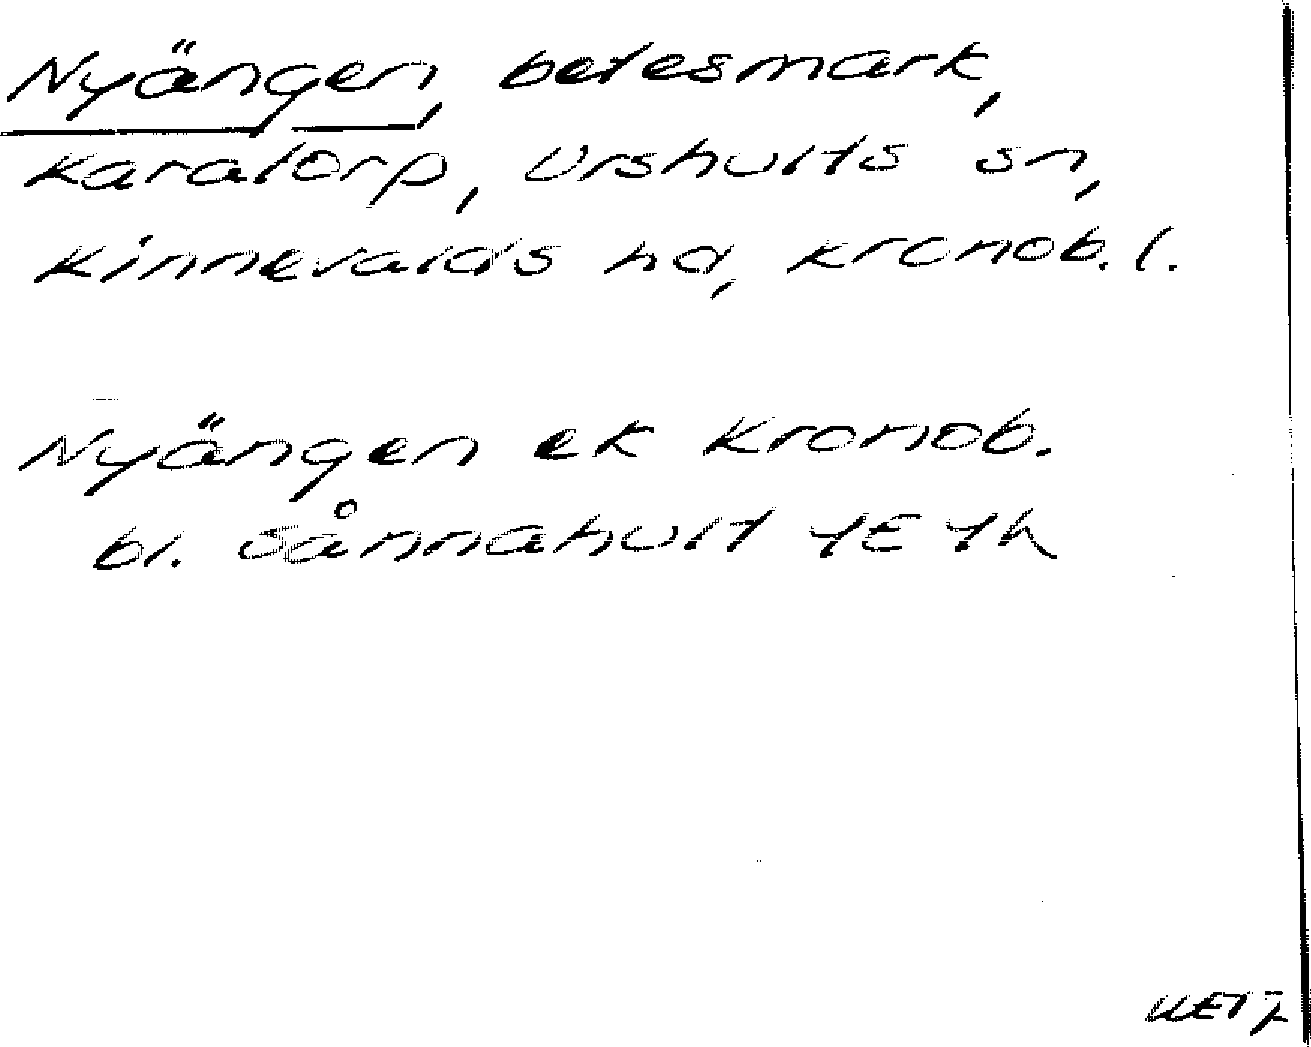 Nyängen, betesmark,
Karatorp, Urshults sn,
Kinnevalds hd, Kronob. l.
Nyängen ek Kronob.
bl. Sånnahult